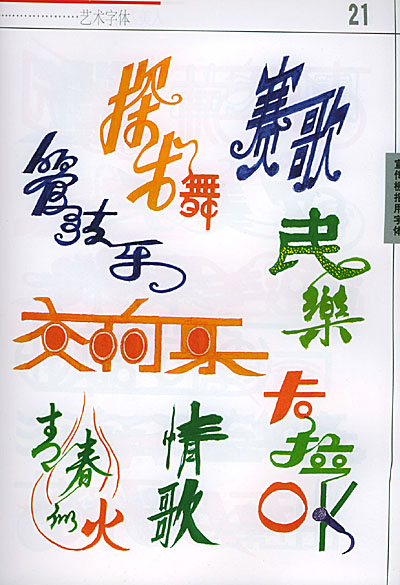 艺术字体
21
探戈舞
赛歌
管弦乐
民樂
交响乐
卡拉
OK
青春似火
情歌
宣传板报用字体